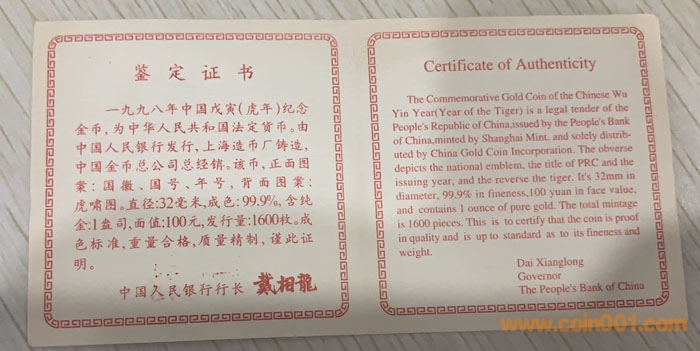 鉴定证书
一九九八年中国戊寅(虎年)纪念
金币,为中华人民共和国法定货币。由
中国人民银行发行,上海造币厂铸造,
中国金币总公司总经销。该币,正面图
案:国徽、国号、年号,背面图案:
虎啸图。直径:32毫米,成色:99.9%,含纯
金:1盎司,面值:100元,发行量:1600枚。成
色标准,重量合格,质量精制,谨此证
明。
中国人民银行行长 戴相龍
Certificate of Authenticity
The Commemorative Gold Coin of the Chinese Wu
Yin Year(Year of the Tiger) is a legal tender of the
People's Republic of China,issued by the People's Bank
of China,minted by Shanghai Mint, and solely distrib-
uted by China Gold Coin Incorporation. The obverse
depicts the national emblem, the title of PRC and the
issuing year, and the reverse the tiger. It's 32mm in
diameter, 99.9% in fineness,100 yuan in face value,
and contains 1 ounce of pure gold. The total mintage
is 1600 pieces. This is to certify that the coin is proof
in quality and is up to standard as to its fineness and
weight.
Dai Xianglong
Governor
The People's Bank of China
www.coin001.com